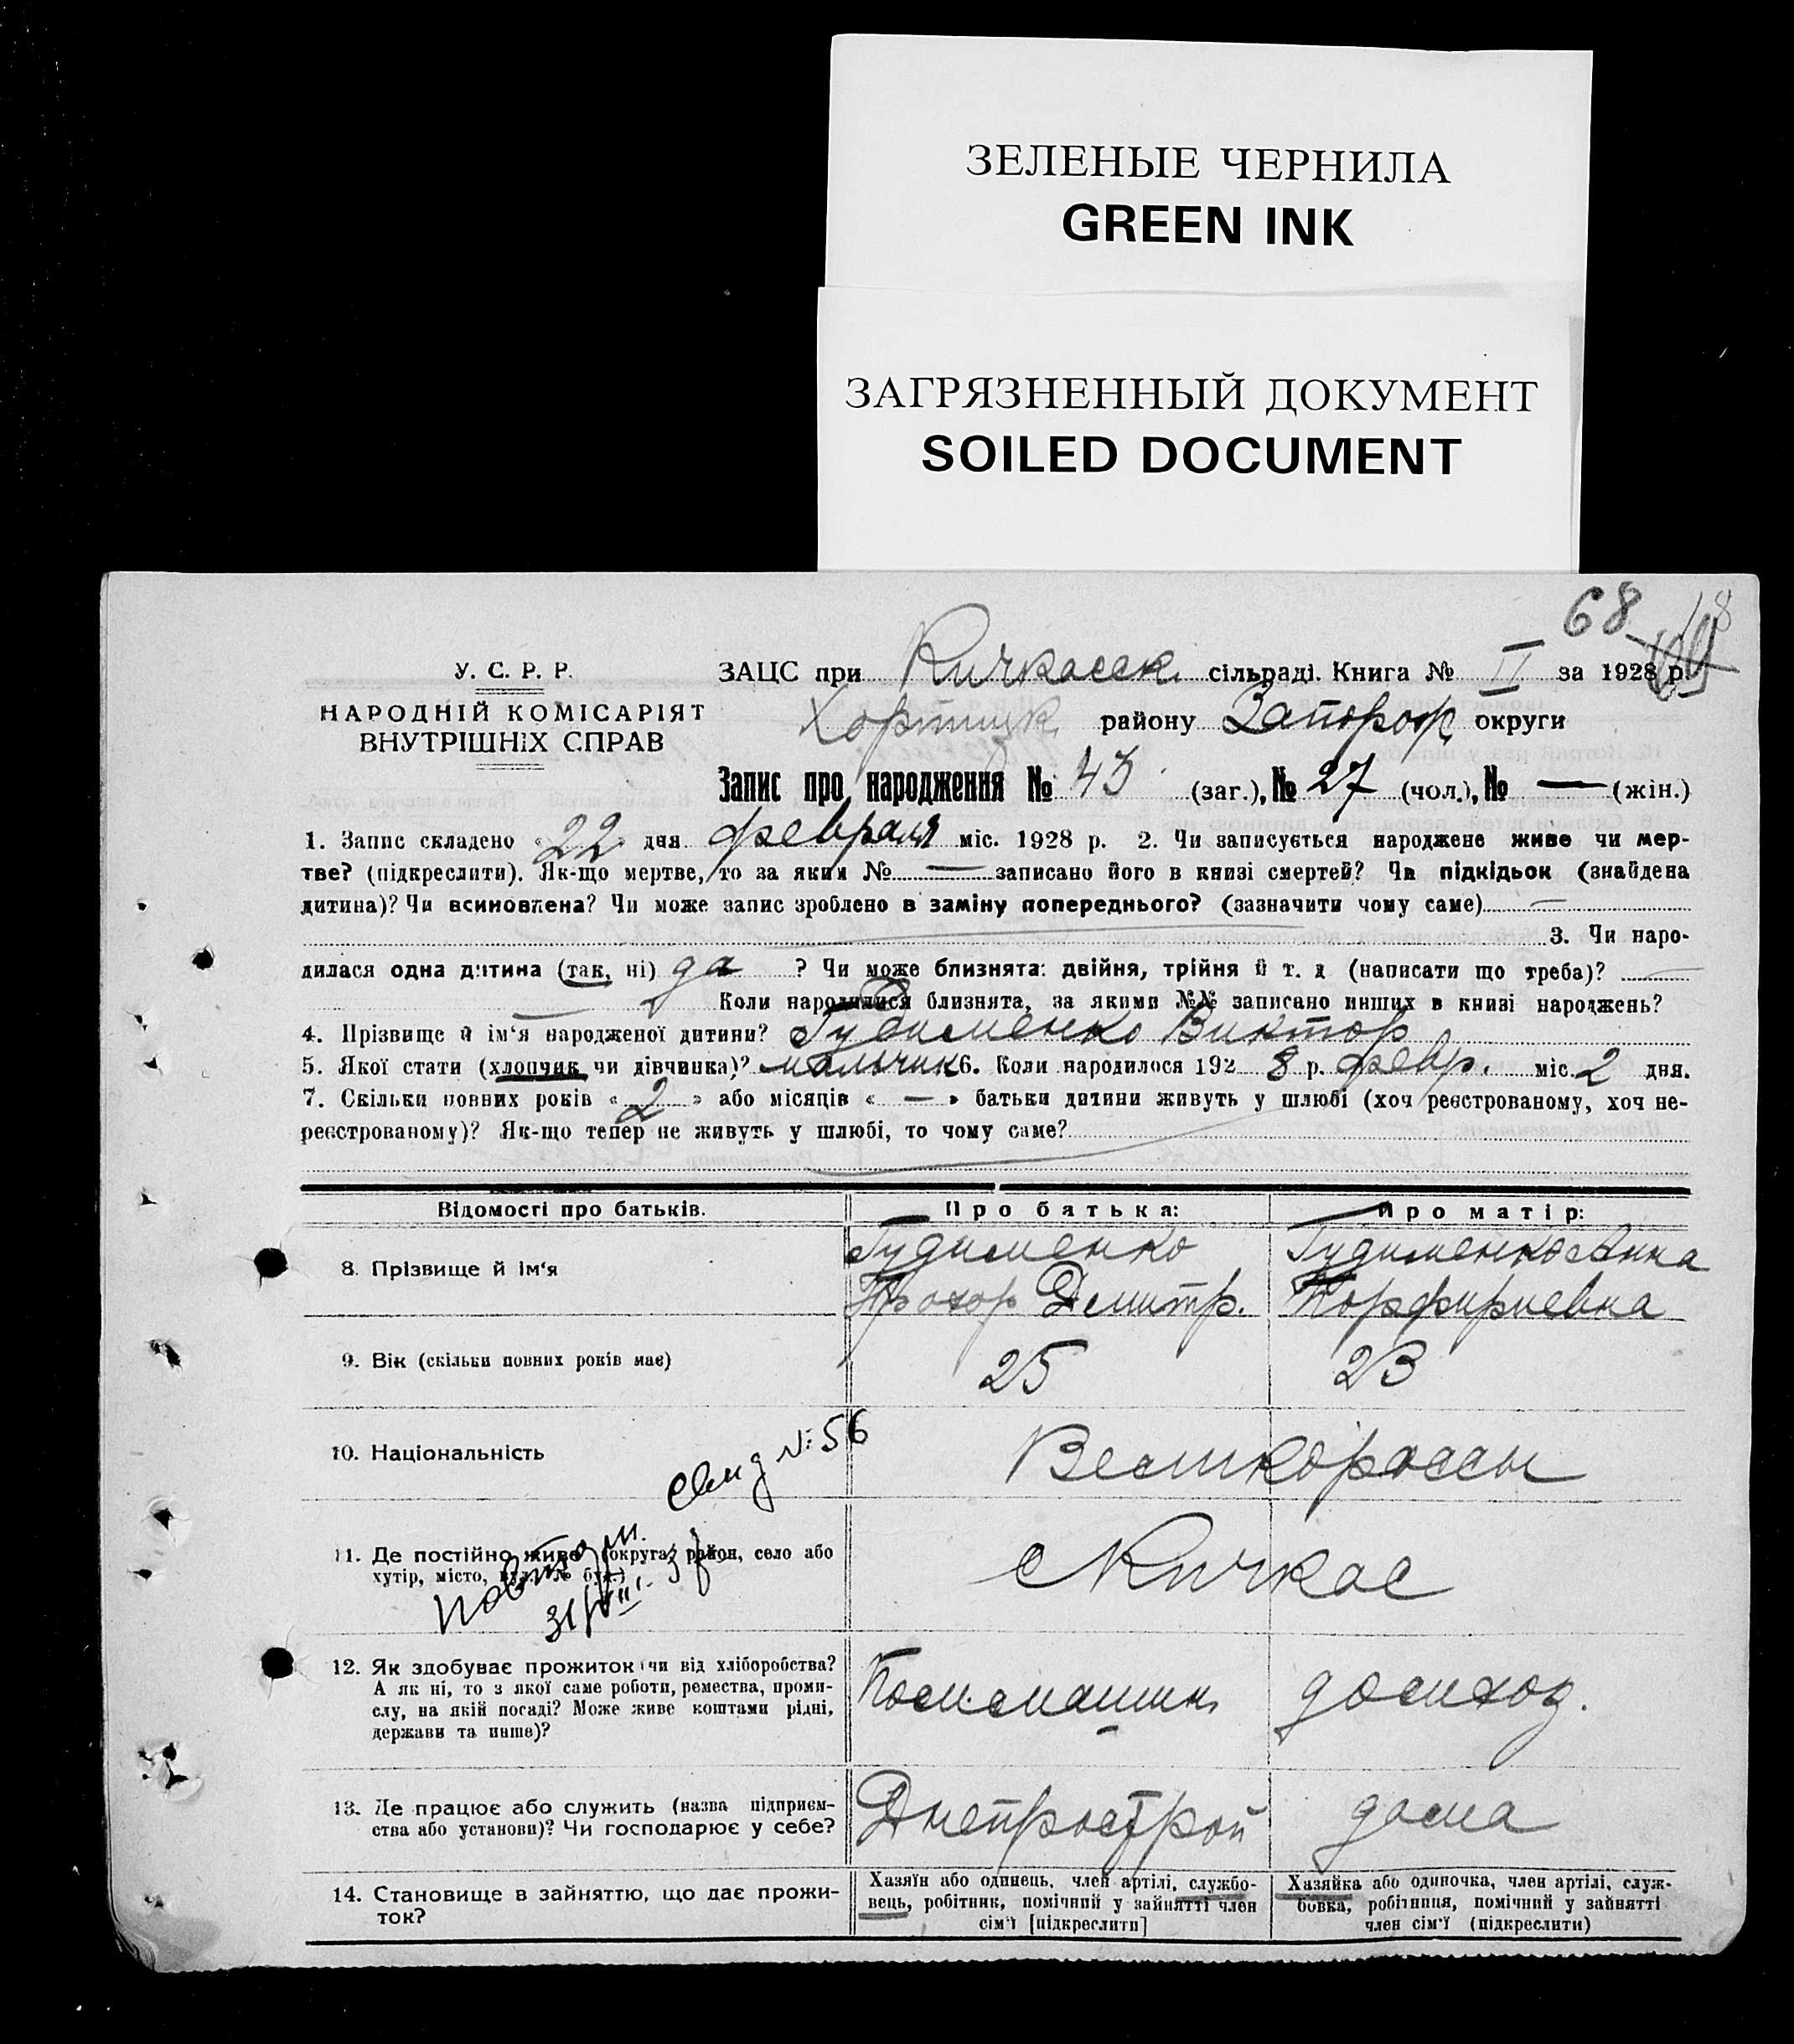 ЗЕЛЕНЫЕ ЧЕРНИЛА
GREEN INK
ЗАГРЯЗНЕННЫЙ ДОКУМЕНТ
SOILED DOCUMENT
68
У. С. Р. Р.
НАРОДНІЙ КОМІСАРІЯТ
ВНУТРІШНІХ СПРАВ
ЗАЦС при Кичкасск. сільраді. Книга № II за 1928 р.
Хортицк. району Запорож округи
Запис про народження № 43 (заг.), № 27 (чол.), № — (жін.)
1. Запис складено «22» дня февраля міс. 1928 р. 2. Чи записується народжене живе чи мер-
тве? (підкреслити). Як-що мертве, то за яким № — записано його в книзі смертей? Чи підкідьок (знайдена
дитина)? Чи всиновлена? Чи може запис зроблено в заміну попереднього? (зазначити чому саме) —
3. Чи наро-
дилася одна дитина (так, ні) да ? Чи може близнята: двійня, трійня й т. д (написати що треба)? —
— Коли народилися близнята, за якими №№ записано инших в книзі народжень?
4. Прізвище й ім‘я народженої дитини? Гудименко Виктор
5. Якої стати (хлопчик чи дівчинка)? мальчик 6. Коли народилося 1928 р. февр. міс. 2 дня.
7. Скільки повних років «2» або місяців «—» батьки дитини живуть у шлюбі (хоч реєстрованому, хоч не-
реєстрованому)? Як-що тепер не живуть у шлюбі, то чому саме?
Відомості про батьків.
Про батька:
Про матір:
8. Прізвище й ім‘я
Гудименко
Прохор Дмитр.
Гудименко Анна
Порфириевна
9. Вік (скільки повних років має)
25
23
10. Національність
Великороссы
свид №: 56
11. Де постійно живе (округа, район, село або
хутір, місто, вул. № буд.)
с Кичкас
31/VIII
12. Як здобуває прожиток (чи від хліборобства?
А як ні, то з якої саме роботи, ремества, проми-
слу, на якій посаді? Може живе коштами рідні,
держави та инше)?
домхоз.
13. Де працює або служить (назва підприєм-
ства або установи)? Чи господарює у себе?
Днепрострой
дома
14. Становище в зайняттю, що дає прожи-
ток?
Хазяїн або одинець, член артілі, службо-
вець, робітник, помічний у зайнятті член
сім‘ї [підкреслити]
Хазяйка або одиночка, член артілі, служ-
бовка, робітниця, помічний у зайнятті
член сім‘ї (підкреслити)